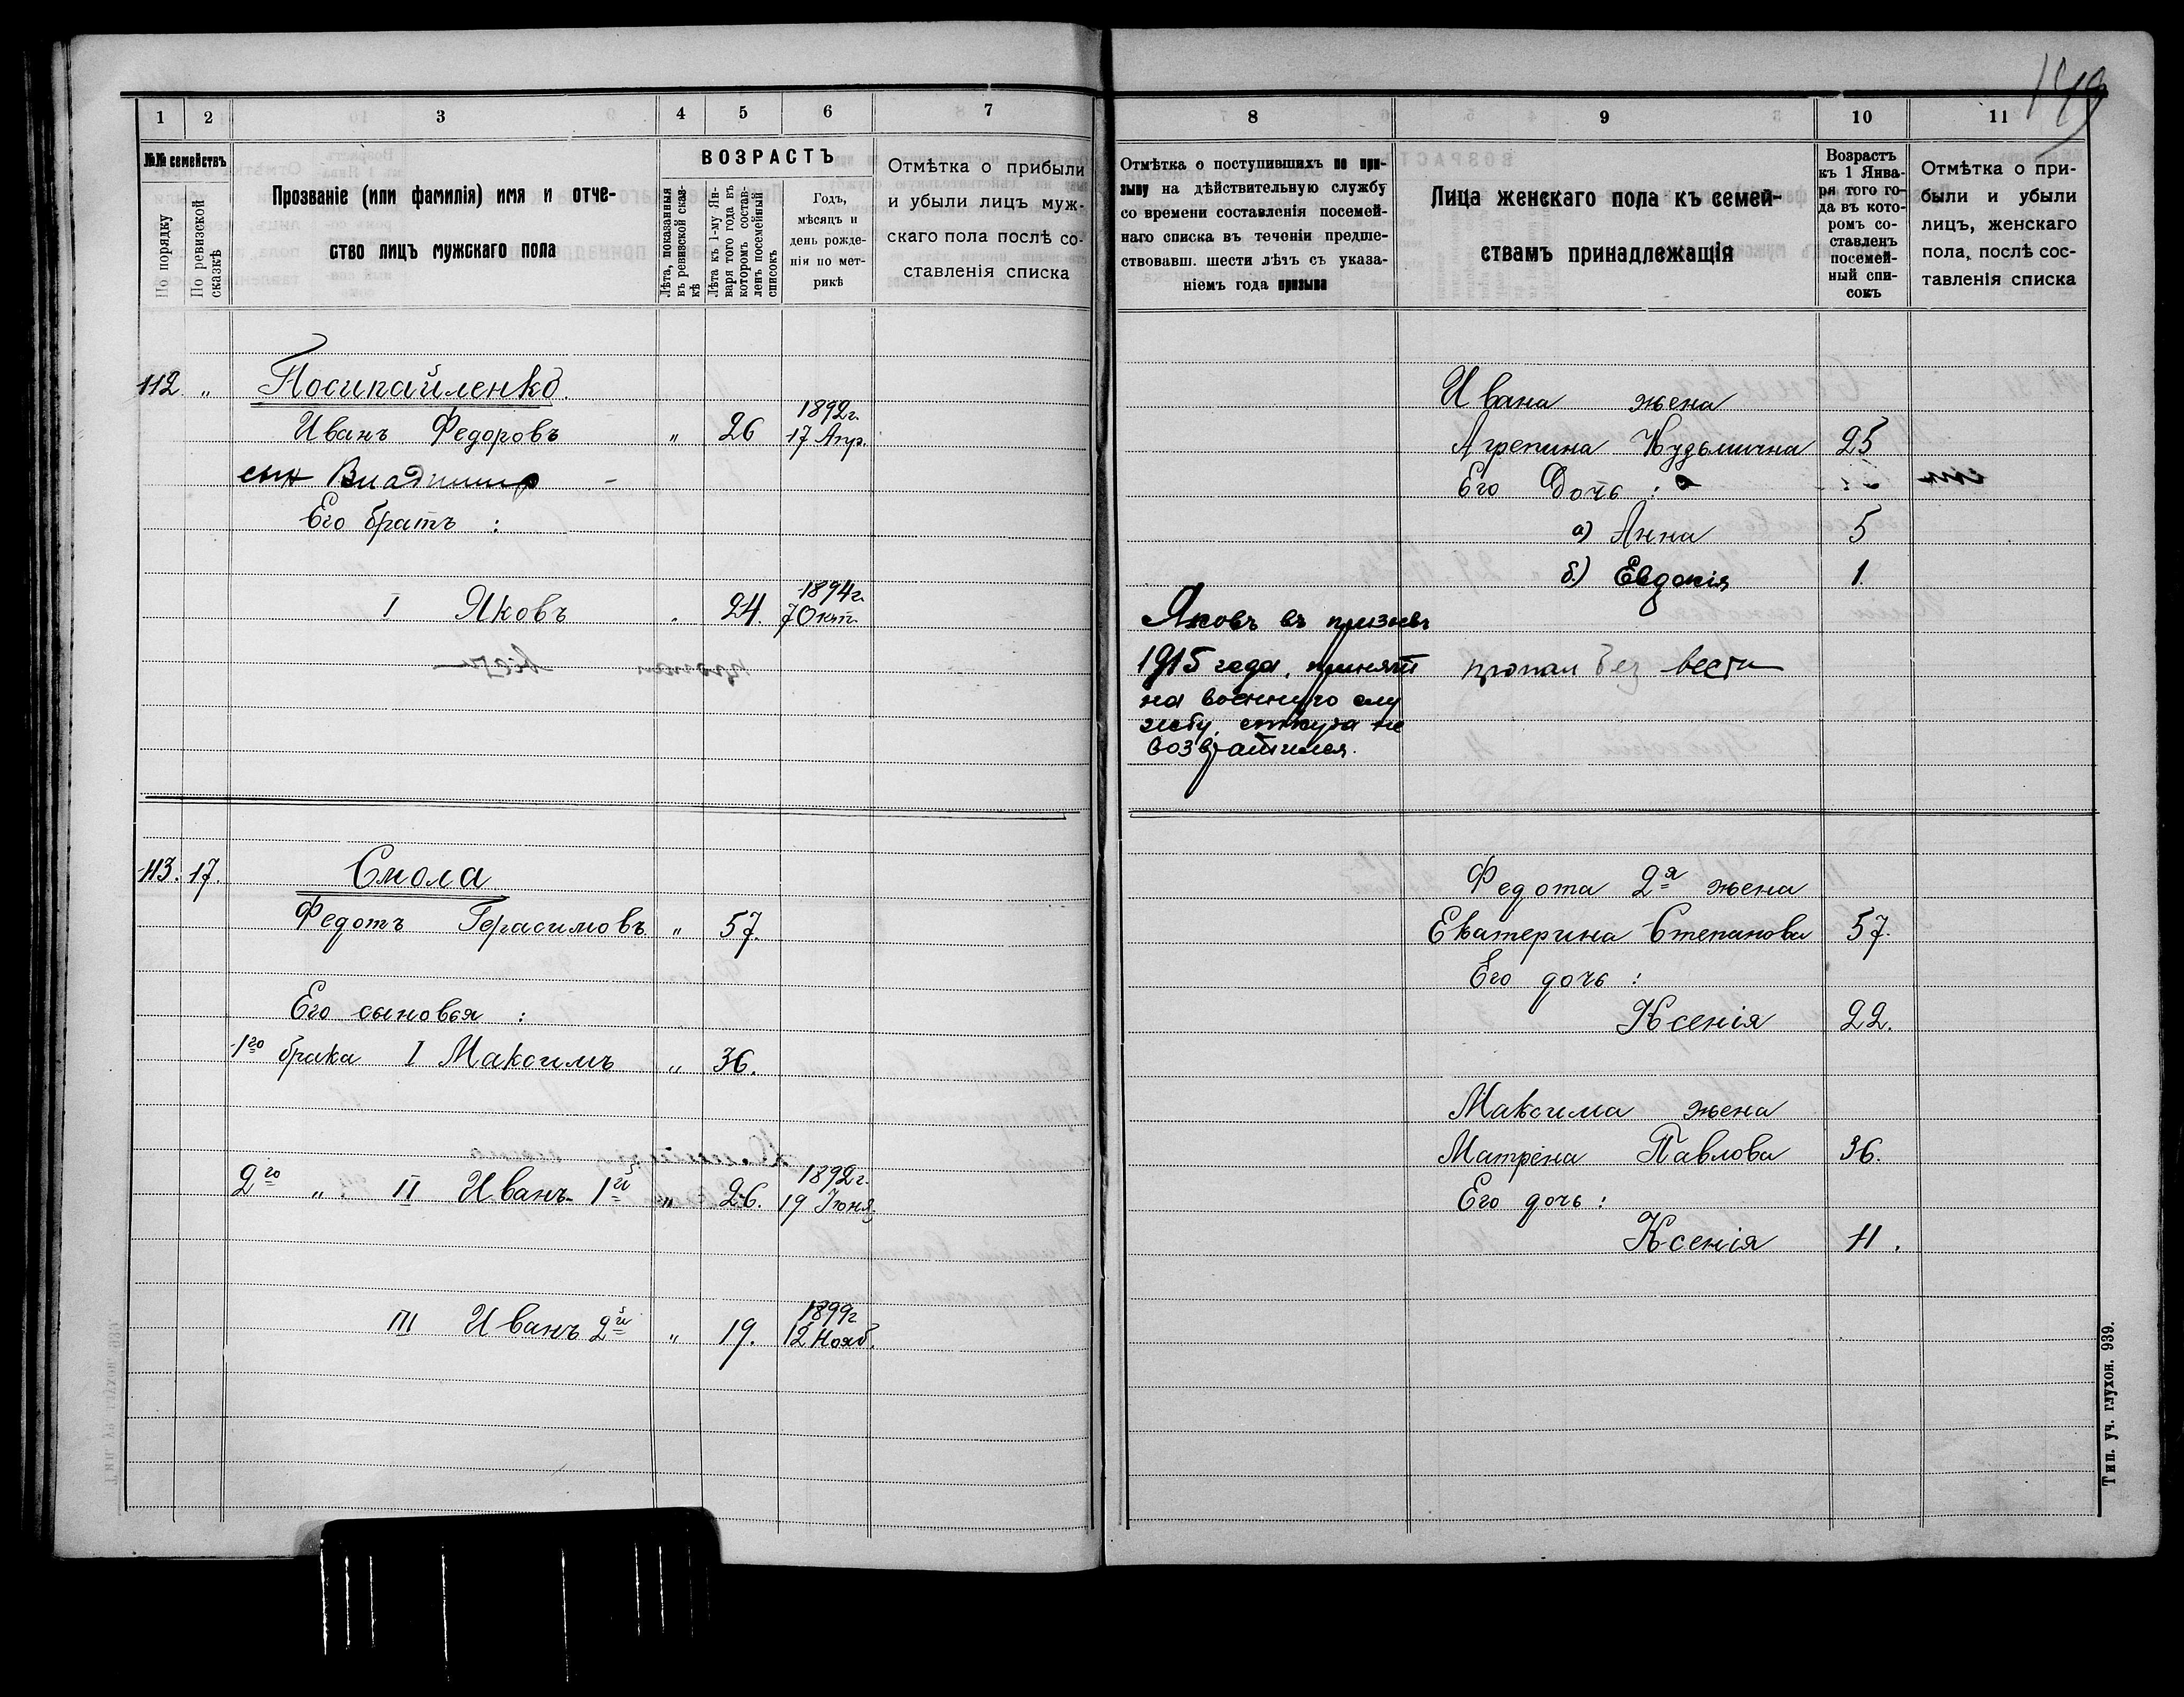 149
1 2 3 4 5 6 7
№№ семействъ
По порядку
По ревизской сказкѣ
Прозваніе (или фамилія) имя и отче-
ство лицъ мужскаго пола
ВОЗРАСТЪ
Лѣта, показанныя
въ ревизской сказ-
кѣ
Лѣта къ 1-му Ян-
варя того года въ
которомъ состав-
ленъ посемейный
списокъ
Годъ,
мѣсяцъ и
день рожде-
нія по мет-
рикѣ
Отмѣтка о прибыли
и убыли лицъ муж-
скаго пола послѣ со-
ставленія списка
112 „ Посипайленко.
Иванъ Федоровъ „ 26 1892г. 17 Апр.
сын Владимир
Его братъ :
I Яковъ . 24. 1894г. 7 Окт.
113. 17. Смола
Федотъ Герасимовъ. „ 57.
Его сыновья :
1го брака I Максимъ „ 36.
2го „ II Иванъ 1й „ 26. 1892г. 19 Іюня
III Иванъ 2й „ 19. 1899г 12 Нояб.
8 9 10 11
Отмѣтка о поступившихъ по при-
зыву на дѣйствительную службу
со времени составленія посемей-
наго списка въ теченіи предше-
ствовавш. шести лѣтъ съ указа-
ніемъ года призыва
Лица женскаго пола къ семей-
ствамъ принадлежащія
Возрастъ
къ 1 Янва-
ря того го-
да въ кото-
ромъ со-
ставленъ
посемей-
ный спи-
сокъ
Отмѣтка о при-
были и убыли
лицъ, женскаго
пола, послѣ сос-
тавленія списка
Ивана жена
Агрепина Кузьминична 25
Его Дочь :
а) Анна 5
б.) Евдокія 1.
Яковъ въ призывъ
1915 года, принятъ пропал без вести
на военную слу
жбу, откуда не
возвратился.
Федота 2я жена
Екатерина Степанова 57.
Его дочь :
Ксенія 22.
Максима жена
Матрена Павлова 36.
Его дочь :
Ксенія 11.
Тип. уч. глухон. 939.